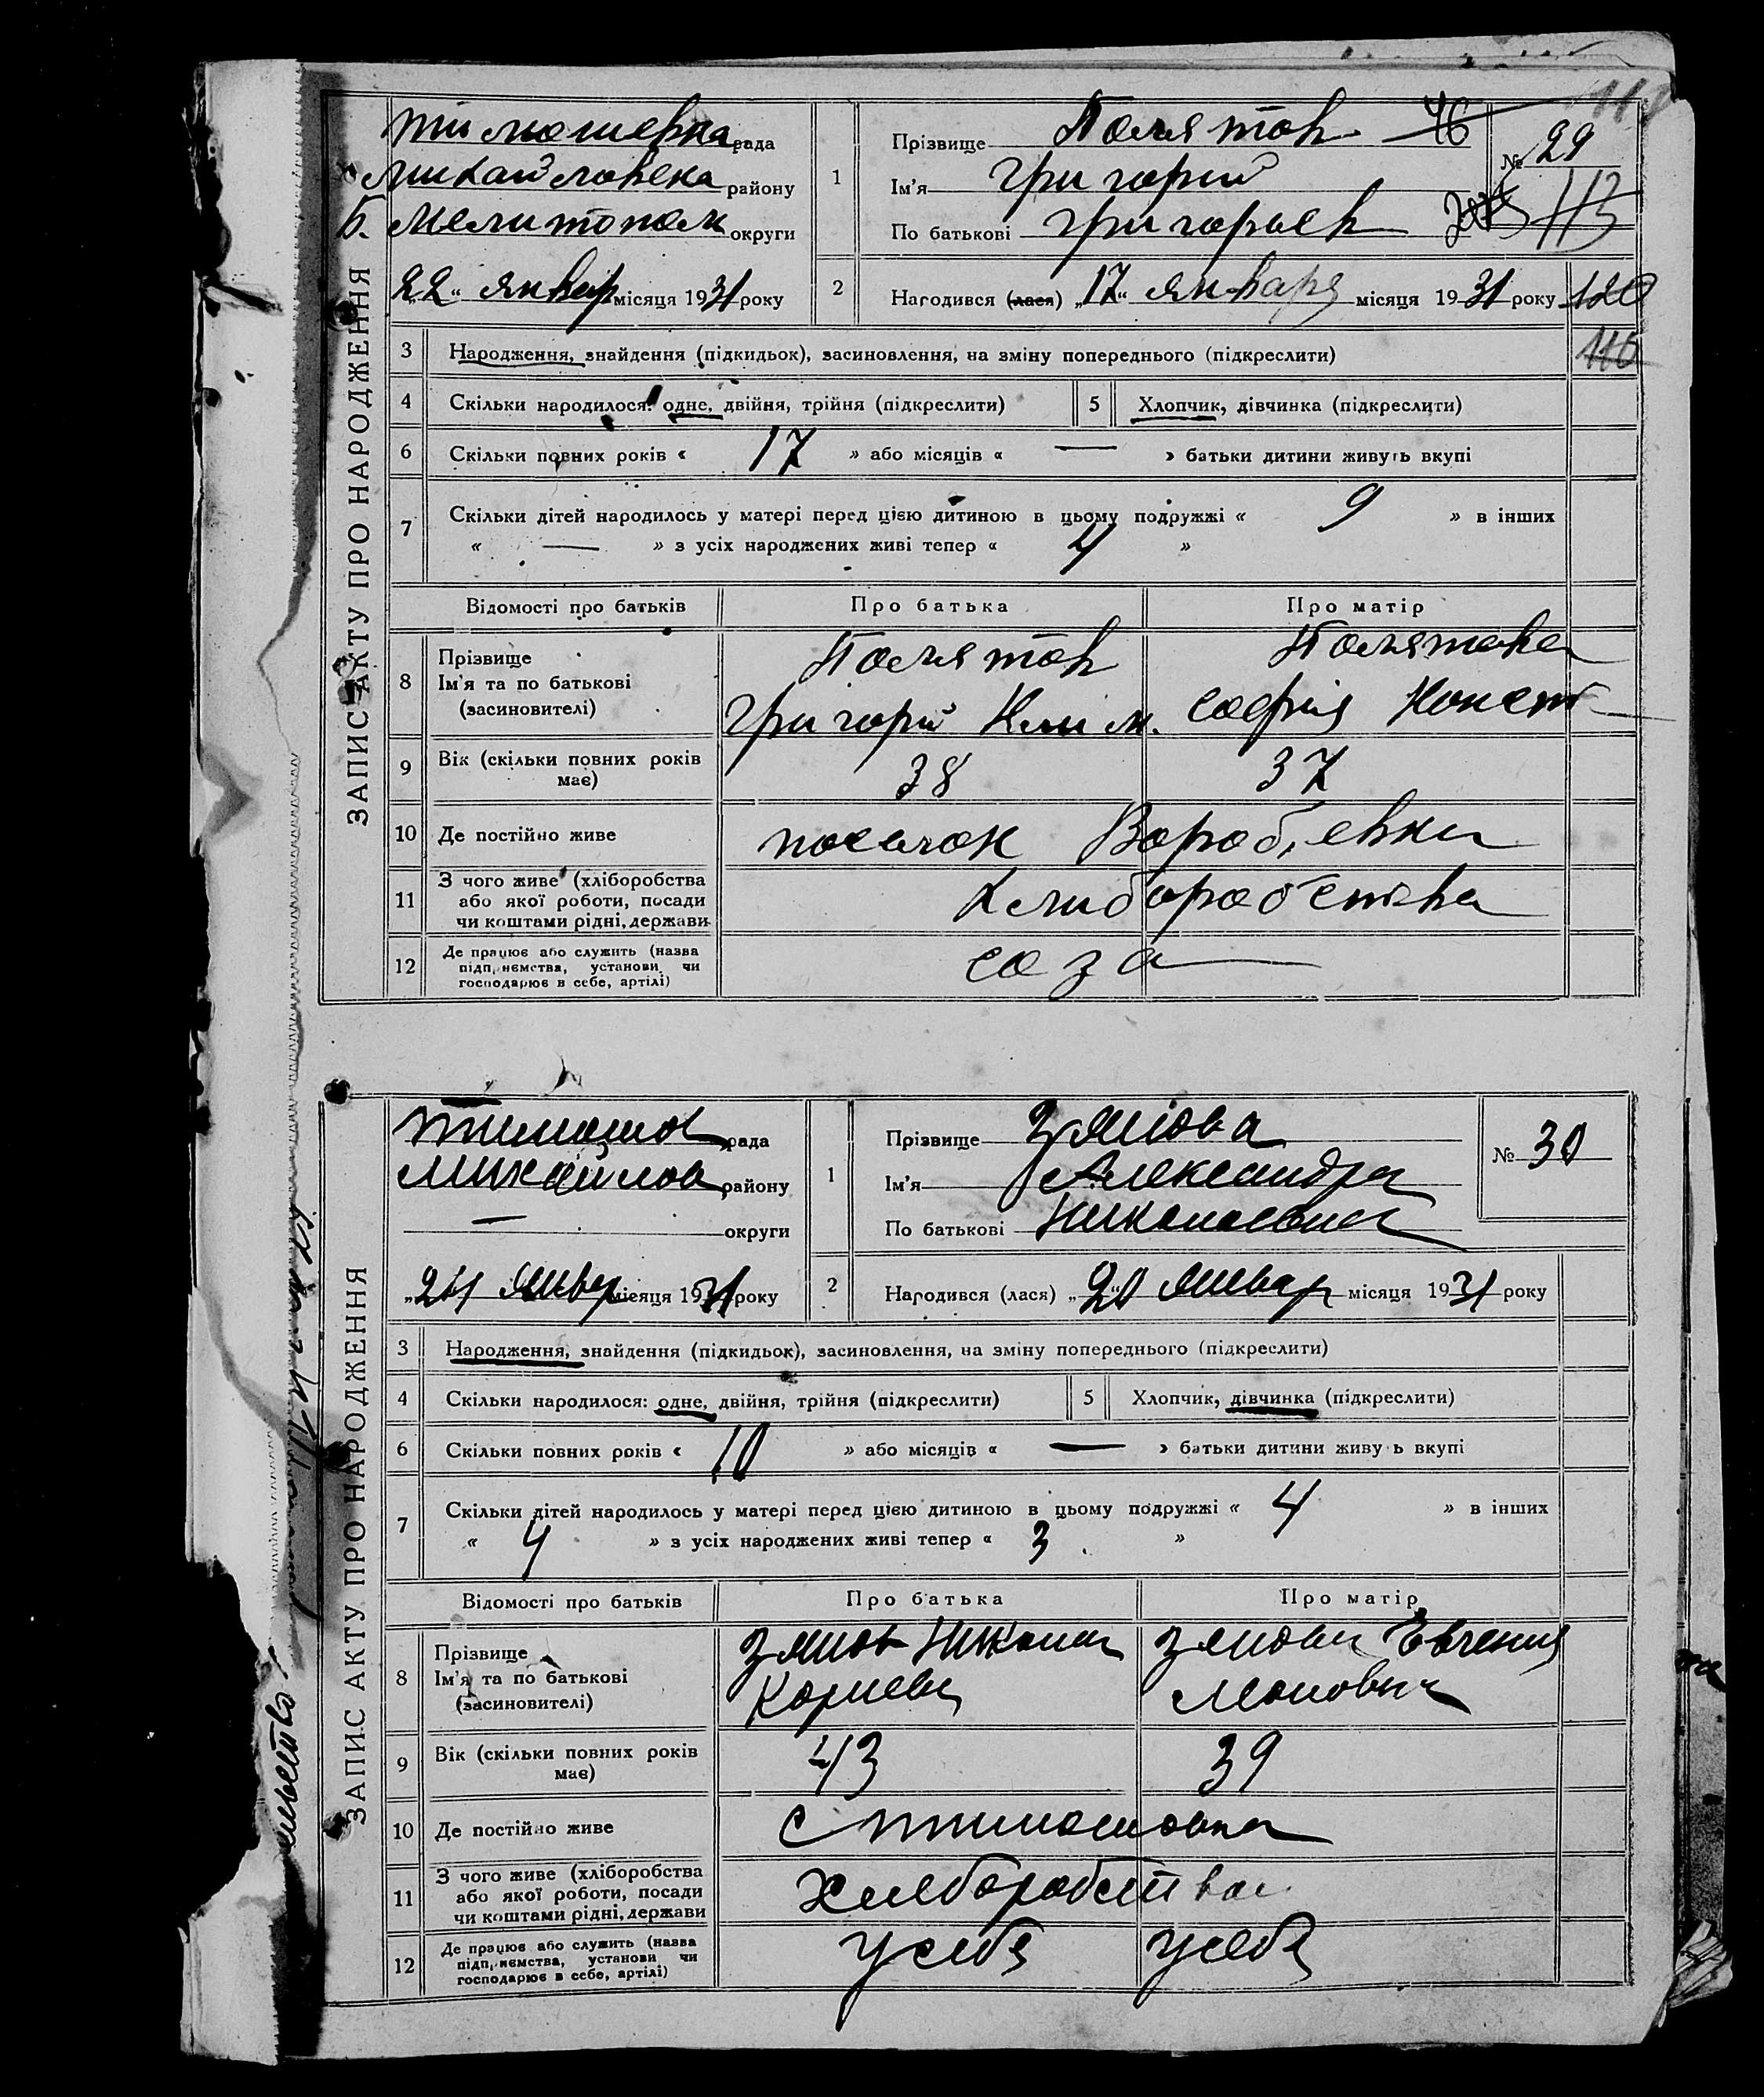 ЗАПИС АКТУ ПРО НАРОДЖЕННЯ
тимошевка рада
михайловска району
б. мелитополь округи
„22“ январ місяця 1931 року
1
Прізвище Полятов
Ім'я Григорий
По батькові Григорьев
46
№ 29
113
120
116
2
Народився (лася) „17“ января місяця 1931 року
3 Народження, знайдення (підкидьок), засиновлення, на зміну попереднього (підкреслити)
4 Скільки народилося: одне, двійня, трійня (підкреслити) 5 Хлопчик, дівчинка (підкреслити)
6 Скільки повних років « 17 » або місяців « — » батьки дитини живуть вкупі
7 Скільки дітей народилось у матері перед цією дитиною в цьому подружжі « 9 » в інших
« — » з усіх народжених живі тепер « 4 »
Відомості про батьків Про батька Про матір
8 Прізвище
Ім'я та по батькові
(засновителі)
Полятов
Григорій Клим.
Полятова
Софія Конст
9 Вік (скільки повних років має) 38 37
10 Де постійно живе поселок Вороб,евки
11 З чого живе (хліборобства
або якої роботи, посади
чи коштами рідні, держави
хлиборобства
12 Де працює або служить (назва
підприємства, установи чи
господарює в себе, артілі)
соза
ЗАПИС АКТУ ПРО НАРОДЖЕННЯ
тимошов рада
Михайлов району
— округи
„24 Январ місяця 1931 року
1
Прізвище Зямова
Ім'я Александра
По батькові Николаевна
№ 30
2
Народився (лася) „20“ Январ місяця 1931 року
3 Народження, знайдення (підкидьок), засиновлення, на зміну попереднього (підкреслити)
4 Скільки народилося: одне, двійня, трійня (підкреслити) 5 Хлопчик, дівчинка (підкреслити)
6 Скільки повних років « 10 » або місяців « — » батьки дитини живуть вкупі
7 Скільки дітей народилось у матері перед цією дитиною в цьому подружжі « 4 » в інших
« 4 » з усіх народжених живі тепер « 3 »
Відомості про батьків Про батька Про матір
8 Прізвище
Ім'я та по батькові
(засиновителі)
Николай
Евгения
9 Вік (скільки повних років має) 43 39
10 Де постійно живе с тимошовка
11 З чого живе (хліборобства
або якої роботи, посади
чи коштами рідні, держави
Хлеборобства
12 Де працює або служить (назва
підприємства, установи чи
господарює в себе, артілі)
У себя У себя